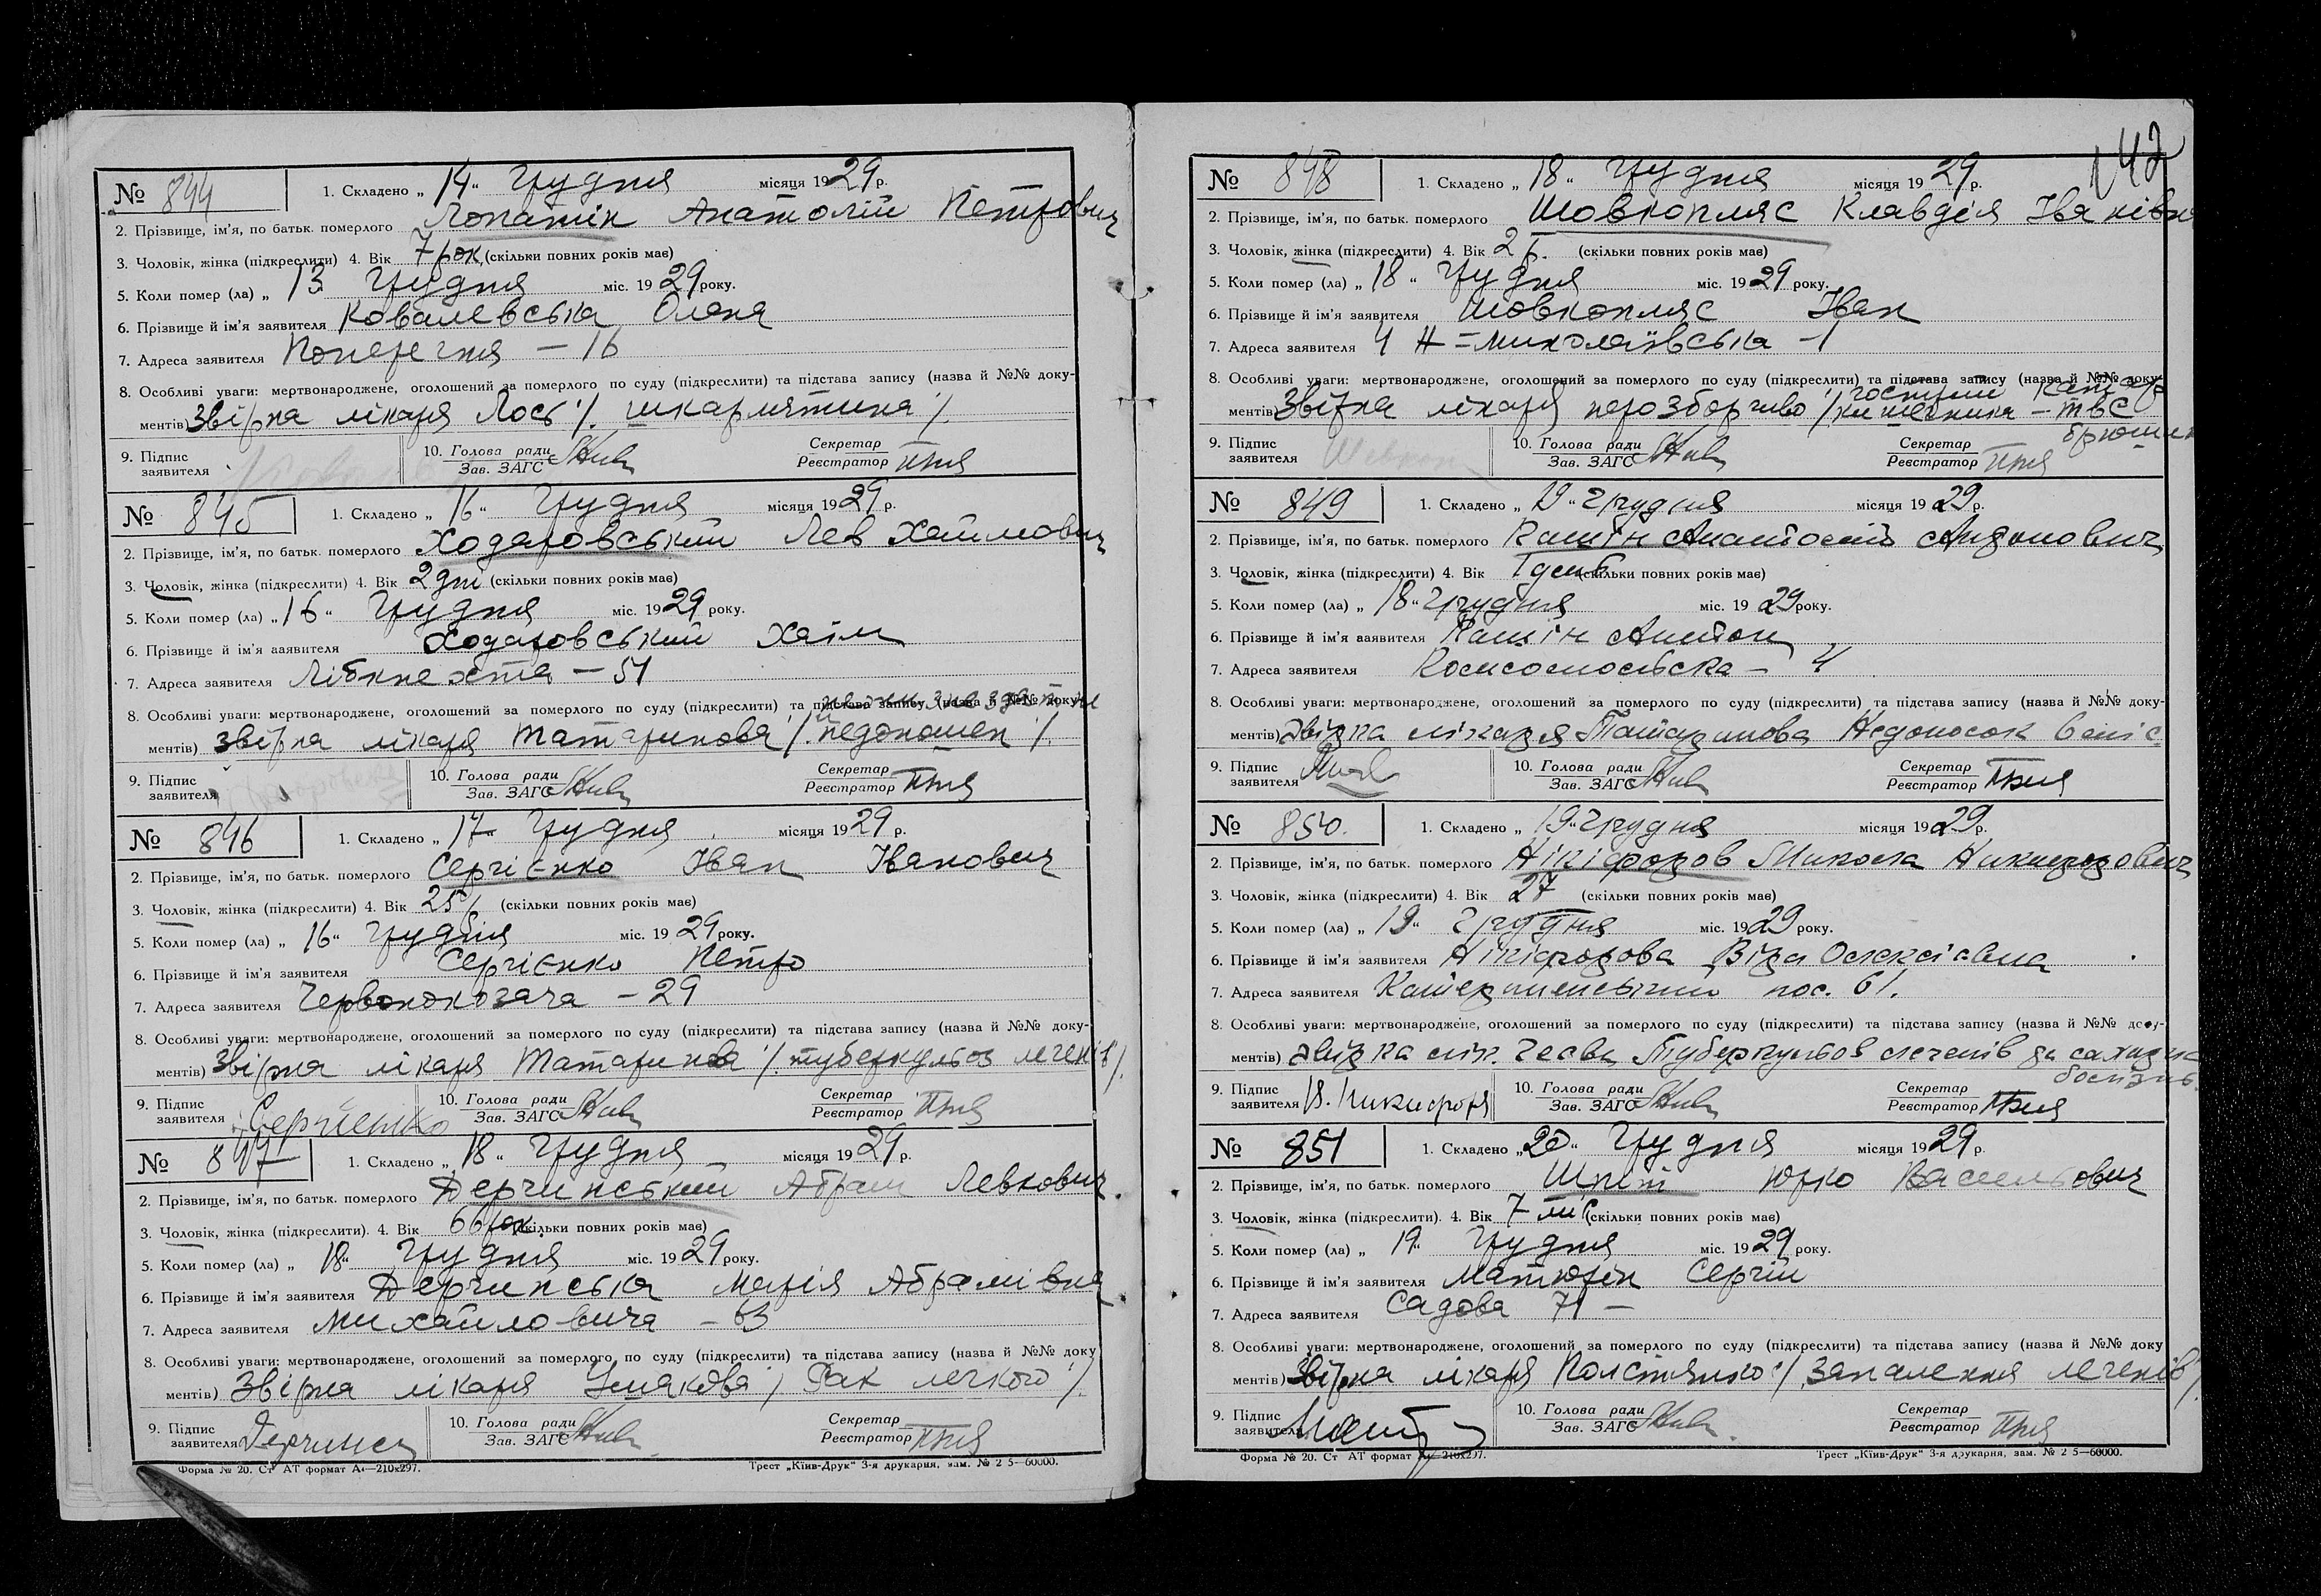 № 844 1. Складено „ 14 “ Грудня місяця 1929 р.
2. Прізвище, ім'я, по батьк. померлого Лопатін Анатолій Петрович
3. Чоловік, жінка (підкреслити) 4. Вік 7 рок. (скільки повних років має)
5. Коли помер (ла) „ 13 Грудня міс. 1929 року.
6. Прізвище й ім'я заявителя Ковалевська Олена
7. Адреса заявителя Поперечня – 16
8. Особливі уваги: мертвонароджене, оголошений за померлого по суду (підкреслити) та підстава запису (назва й №№ доку-
ментів) Звірка лікаря Лось /. шкарлятина /.
9. Підпис заявителя 10. Голова ради Зав. ЗАГС Секретар Реєстратор
№ 845 1. Складено „ 16 “ Грудня місяця 1929 р.
2. Прізвище, ім'я, по батьк. померлого Ходаровський Лев Хаймович
3. Чоловік, жінка (підкреслити) 4. Вік 2 дні (скільки повних років має)
5. Коли помер (ла) „ 16 “ Грудня міс. 1929 року.
6. Прізвище й ім'я заявителя Ходаровський Хаім
7. Адреса заявителя Лібкнехта – 51
8. Особливі уваги: мертвонароджене, оголошений за померлого по суду (підкреслити) та підстава запису (назва й №№ доку-
ментів) Звірка лікаря Татаринова /. недоношен /.
9. Підпис заявителя 10. Голова ради Зав. ЗАГС Секретар Реєстратор
№ 846 1. Складено „ 17 Грудня місяця 1929 р.
2. Прізвище, ім'я, по батьк. померлого Сергієнко Іван Іванович
3. Чоловік, жінка (підкреслити) 4. Вік 25 р. (скільки повних років має)
5. Коли помер (ла) „ 16 “ Грудня міс. 1929 року.
6. Прізвище й ім'я заявителя Сергієнко Петро
7. Адреса заявителя Червонокозача – 29
8. Особливі уваги: мертвонароджене, оголошений за померлого по суду (підкреслити) та підстава запису (назва й №№ доку-
ментів) Звірка лікаря Татаринова /. туберкульоз легенів /.
9. Підпис заявителя Сергієнко 10. Голова ради Зав. ЗАГС Секретар Реєстратор
№ 847 1. Складено „ 18 “ Грудня місяця 1929 р.
2. Прізвище, ім'я, по батьк. померлого Дерчинський Абрам Левкович
3. Чоловік, жінка (підкреслити). 4. Вік 66 рок. (скільки повних років має)
5. Коли помер (ла) „ 18 “ Грудня міс. 1929 року.
6. Прізвище й ім'я заявителя Дерчинська Марія Абрамівна
7. Адреса заявителя Михайловича – 63
8. Особливі уваги: мертвонароджене, оголошений за померлого по суду (підкреслити) та підстава запису (назва й №№ доку
ментів) Звірка лікаря Ушакова / Рак легкого /.
9. Підпис заявителя 10. Голова ради Зав. ЗАГС Секретар Реєстратор
Форма № 20. Ст АТ формат А4—210х297. Трест „Київ-Друк“ 3-я друкарня, зам. № 2 5—60000.
142
№ 848 1. Складено „ 18 “ Грудня місяця 1929 р.
2. Прізвище, ім'я, по батьк. померлого Шовкопляс Клавдія Іванівна
3. Чоловік, жінка (підкреслити) 4. Вік 2 р. (скільки повних років має)
5. Коли помер (ла) „ 18 “ Грудня міс. 1929 року.
6. Прізвище й ім'я заявителя Шовкопляс Іван
7. Адреса заявителя 4 Н=Миколаївська – 1
8. Особливі уваги: мертвонароджене, оголошений за померлого по суду (підкреслити) та підстава запису (назва й №№ доку-
ментів) Звірка лікаря нерозборчиво / гострий катар кишечника – твс
9. Підпис заявителя 10. Голова ради Зав. ЗАГС Секретар Реєстратор
№ 849 1. Складено „ 19 “ Грудня місяця 1929 р.
2. Прізвище, ім'я, по батьк. померлого Кашін Анатолій Антонович
3. Чоловік, жінка (підкреслити) 4. Вік 1 день (скільки повних років має)
5. Коли помер (ла) „ 18 “ Грудня міс. 1929 року.
6. Прізвище й ім'я заявителя Кашін Антон
7. Адреса заявителя Комсомольська – 4
8. Особливі уваги: мертвонароджене, оголошений за померлого по суду (підкреслити) та підстава запису (назва й №№ доку-
ментів) Звірка лікаря Татаринова Недоносок 6 міс
9. Підпис заявителя 10. Голова ради Зав. ЗАГС Секретар Реєстратор
№ 850. 1. Складено „ 19 “ Грудня місяця 1929 р.
2. Прізвище, ім'я, по батьк. померлого Нікіфоров Микола Никифорович
3. Чоловік, жінка (підкреслити) 4. Вік 27 (скільки повних років має)
5. Коли помер (ла) „ 19 “ Грудня міс. 1929 року.
6. Прізвище й ім'я заявителя Нікіфорова Віра Олексіївна
7. Адреса заявителя Катерининський пос. 61.
8. Особливі уваги: мертвонароджене, оголошений за померлого по суду (підкреслити) та підстава запису (назва й №№ доку-
ментів) Звірка лік. Туберкульоз легенів
9. Підпис заявителя 10. Голова ради Зав. ЗАГС Секретар Реєстратор
№ 851 1. Складено „ 20 “ Грудня місяця 1929 р.
2. Прізвище, ім'я, по батьк. померлого Юрко Васильович
3. Чоловік, жінка (підкреслити). 4. Вік 7 міс (скільки повних років має)
5. Коли помер (ла) „ 19 “ Грудня міс. 1929 року.
6. Прізвище й ім'я заявителя Матюрін Сергій
7. Адреса заявителя Садова 71 –
8. Особливі уваги: мертвонароджене, оголошений за померлого по суду (підкреслити) та підстава запису (назва й №№ доку
ментів) Звірка лікаря /. запалення легенів /.
9. Підпис заявителя 10. Голова ради Зав. ЗАГС Секретар Реєстратор
Форма № 20. Ст АТ формат А4—210х297. Трест „Київ-Друк“ 3-я друкарня, зам. № 2 5—60000.